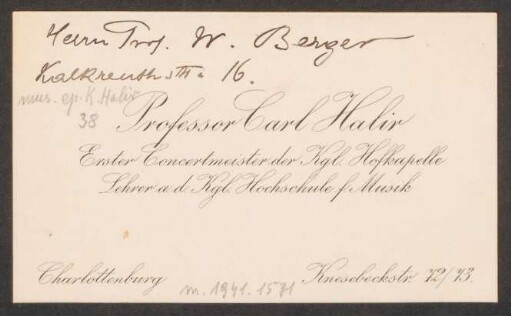 Herrn Prof. W. Berger
Kalkreuthstr 16.
mus. ep. K. Halir
38
Professor Carl Halir
Erster Concertmeister der Kgl. Hofkapelle
Lehrer a. d. Kgl. Hochschule f. Musik
Charlottenburg
Knesebeckstr. 72/73.
m. 1941.1571